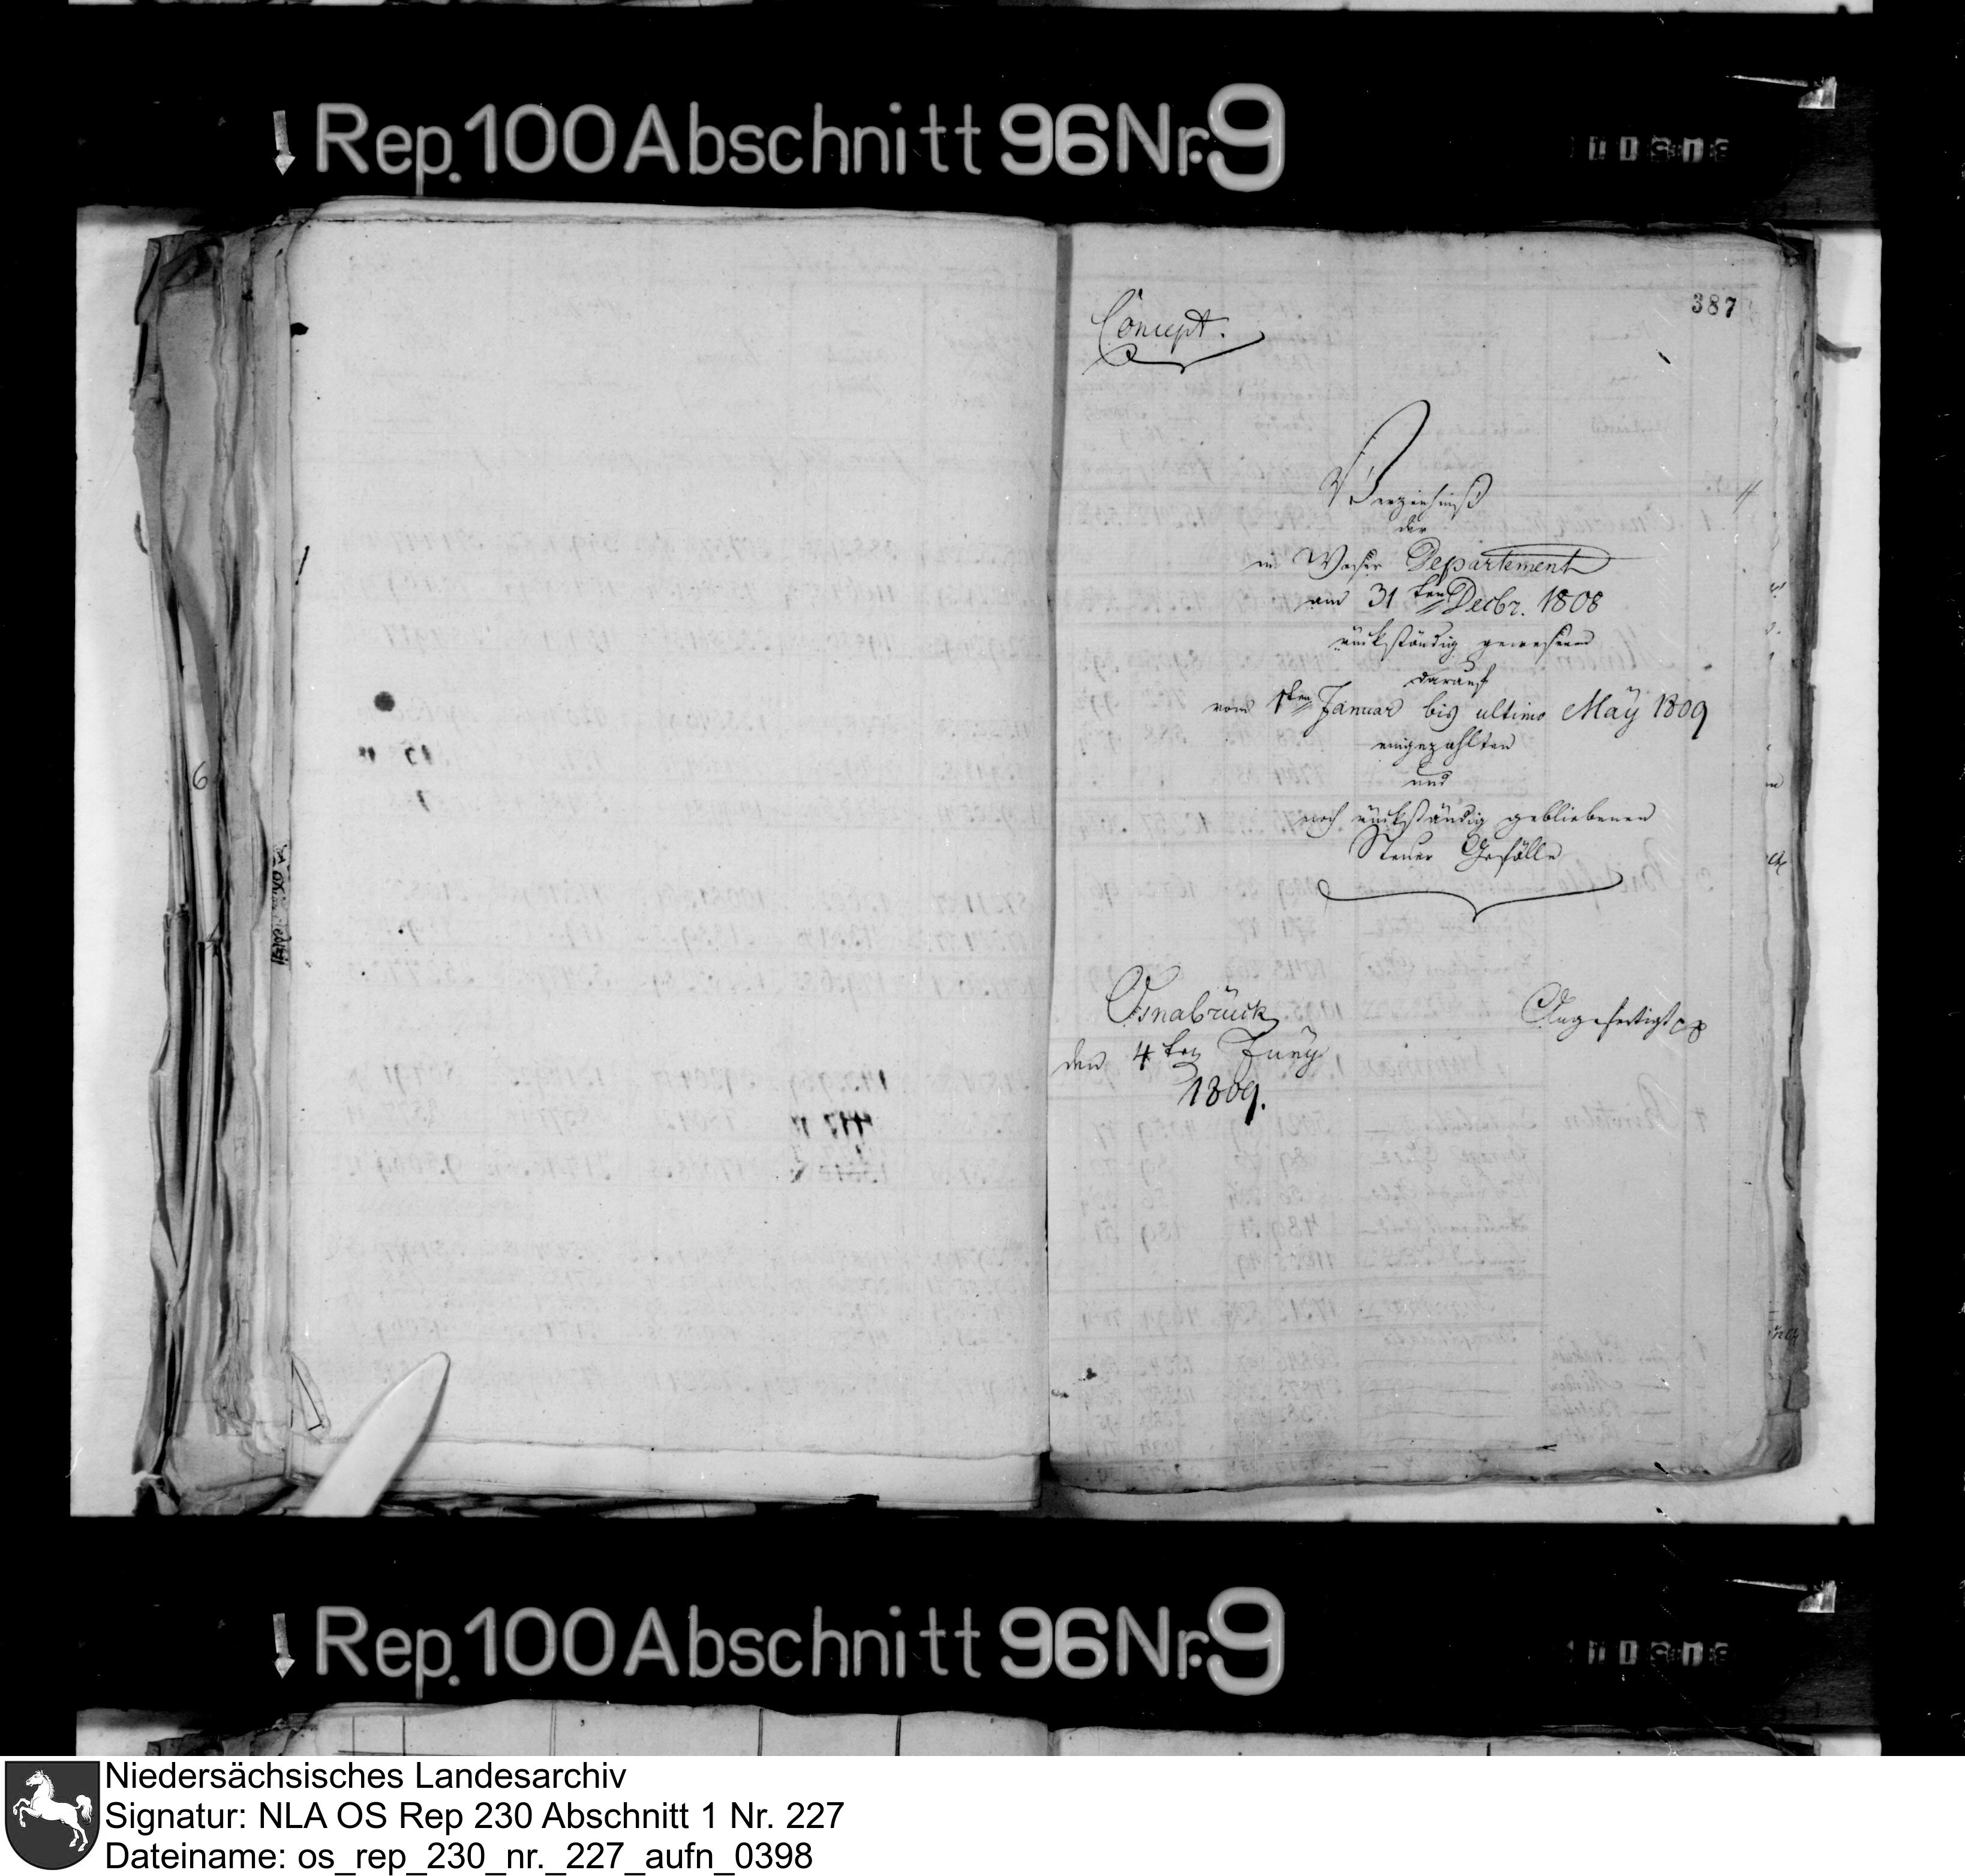 Rep. 100 Abschnitt 96 Nr. 9
387
Concept.
Verzeichniß
der
im Weser Departement
am 31ten Decbr. 1808
rückständig gewesenen
darauf
vom 1ten Januar bis ultimo May 1809
eingezahlten
und
noch rückständig gebliebenen
Steuer Gefälle
Osnabrück
den 4ten Juny
1809.
Angefertigt
6
Rep. 100 Abschnitt 96 Nr. 9
Niedersächsisches Landesarchiv
Signatur: NLA OS Rep 230 Abschnitt 1 Nr. 227
Dateiname: os_rep_230_nr._227_aufn_0398